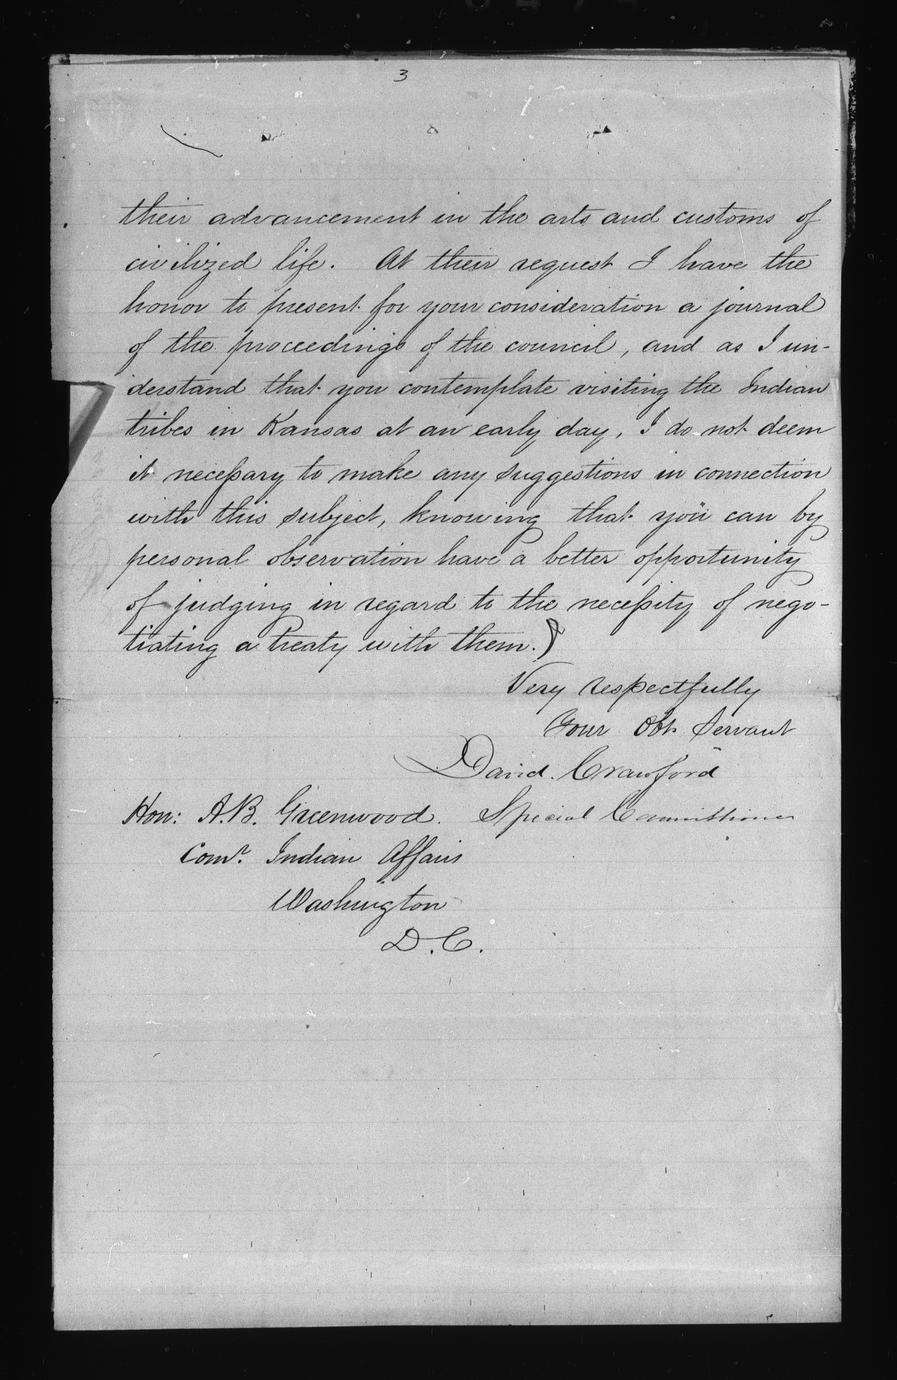 3
their advancement in the arts and customs of
civilized life. At their request I have the
honor to present for your consideration a journal
of the proceedings of the council, and as I un-
derstand that you contemplate visiting the Indian
tribes in Kansas at an early day, I do not deem
it necessary to make any suggestions in connection
with this subject, knowing that you can by
personal observation have a better opportunity
of judging in regard to the necessity of nego-
tiating a treaty with them.)
Very respectfully
Your Obt Servant
David Crawford
Hon: A.B. Greenwood. Special Commissioner
Comr. Indian Affairs
Washington
D.C.